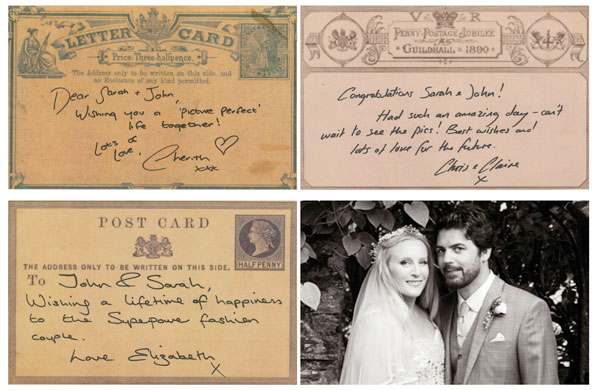 LETTER CARD
Price-Three-halfpence.
The Address only to be written on this side, and
no Enclosure of any kind permitted.
Dear Sarah & John,
Wishing you a 'picture perfect'
life together!
Lots of
Love.
Cherith
xxx
V R
PENNY·POSTAGE·JUBILEE
GUILDHALL 1890
Congratulations Sarah & John!
Had such an amazing day - can't
wait to see the pics! Best wishes and
lots of love for the future.
Chris & Claire
x
POST CARD
HALF PENNY
THE ADDRESS ONLY TO BE WRITTEN ON THIS SIDE.
To John & Sarah,
Wishing a lifetime of happiness
to the Superpower fashion
couple.
Love Elizabeth
x